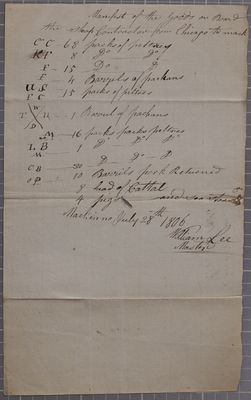 Manifest of the Goods on Board
the Sloop from Chicago to mack
C C - 68 packs of peltries
K F 8 Do Do
F - 15 Do
F 4 Barrels of
U S - 15 packs of peltries
F C
W
T 1 Barrel of
D
M - 16 packs peltries
L B 1 Do
M
C B - 20 Do
O P - 10 Barrels pork Returned
8 head of Cattel
4 pigs
Mackinac July 28th 1806
William Lee
Master